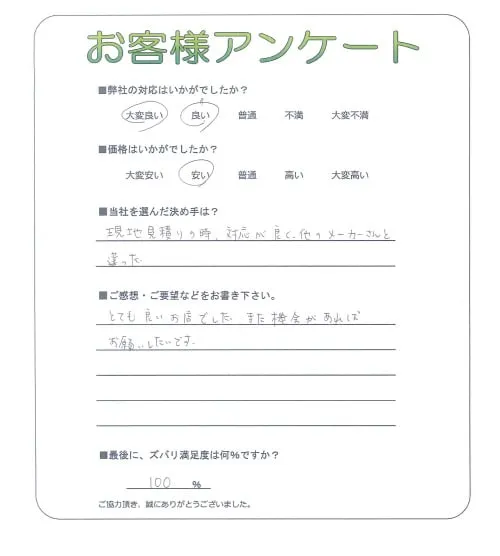 お客様アンケート
■弊社の対応はいかがでしたか？
大変良い 良い 普通 不満 大変不満
■価格はいかがでしたか？
大変安い 安い 普通 高い 大変高い
■当社を選んだ決め手は？
現地見積りの時、対応が良く、他のメーカーさんと
違った
■ご感想・ご要望などをお書き下さい。
とても良いお店でした また機会があれば
お願いしたいです.
■最後に、ズバリ満足度は何％ですか？
100 %
ご協力頂き、誠にありがとうございました。